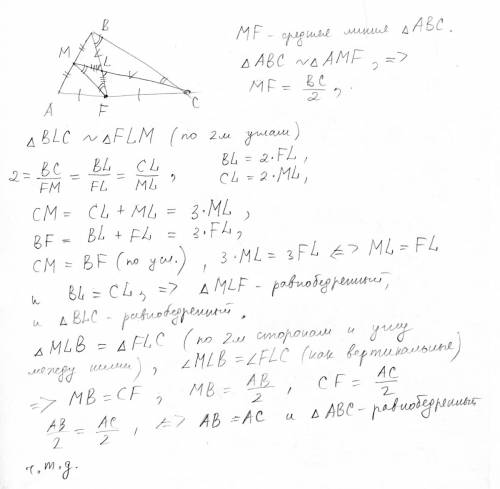 B
M
L
A
F
C
MF - средняя линия △ABC.
△ABC ~ △AMF, =>
MF = BC/2,.
△BLC ~ △FLM (по 2м углам)
2 = BC/FM = BL/FL = CL/ML, BL = 2·FL,
CL = 2·ML,
CM = CL + ML = 3·ML,
BF = BL + FL = 3·FL,
CM = BF (по усл.), 3·ML = 3FL <=> ML = FL
и BL = CL, => △MLF - равнобедренный,
и △BLC - равнобедренный.
△MLB = △FLC (по 2м сторонам и углу
между ними), ∠MLB = ∠FLC (как вертикальные)
=> MB = CF, MB = AB/2, CF = AC/2
AB/2 = AC/2, <=> AB = AC и △ABC - равнобедренный
ч.т.д.